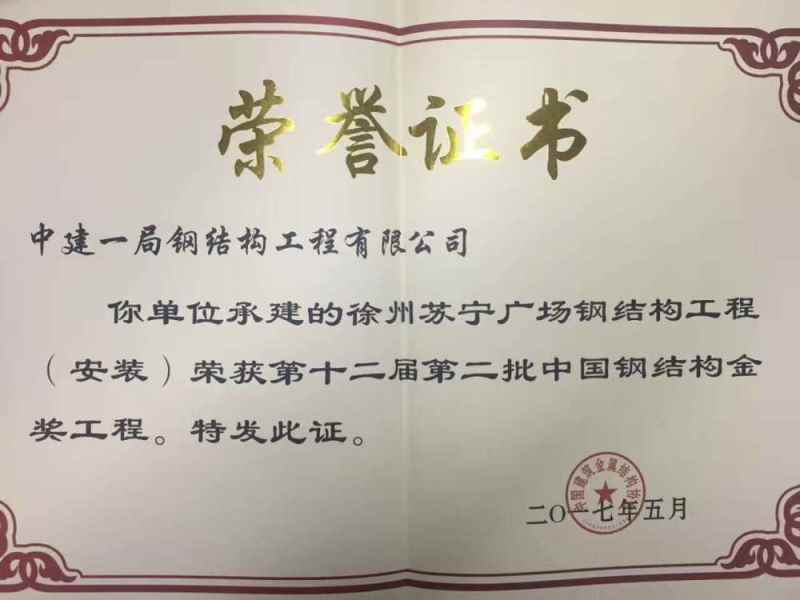 荣誉证书
中建一局钢结构工程有限公司
你单位承建的徐州苏宁广场钢结构工程
（安装）荣获第十二届第二批中国钢结构金
奖工程。特发此证。
中国建筑金属结构协会
二〇一七年五月